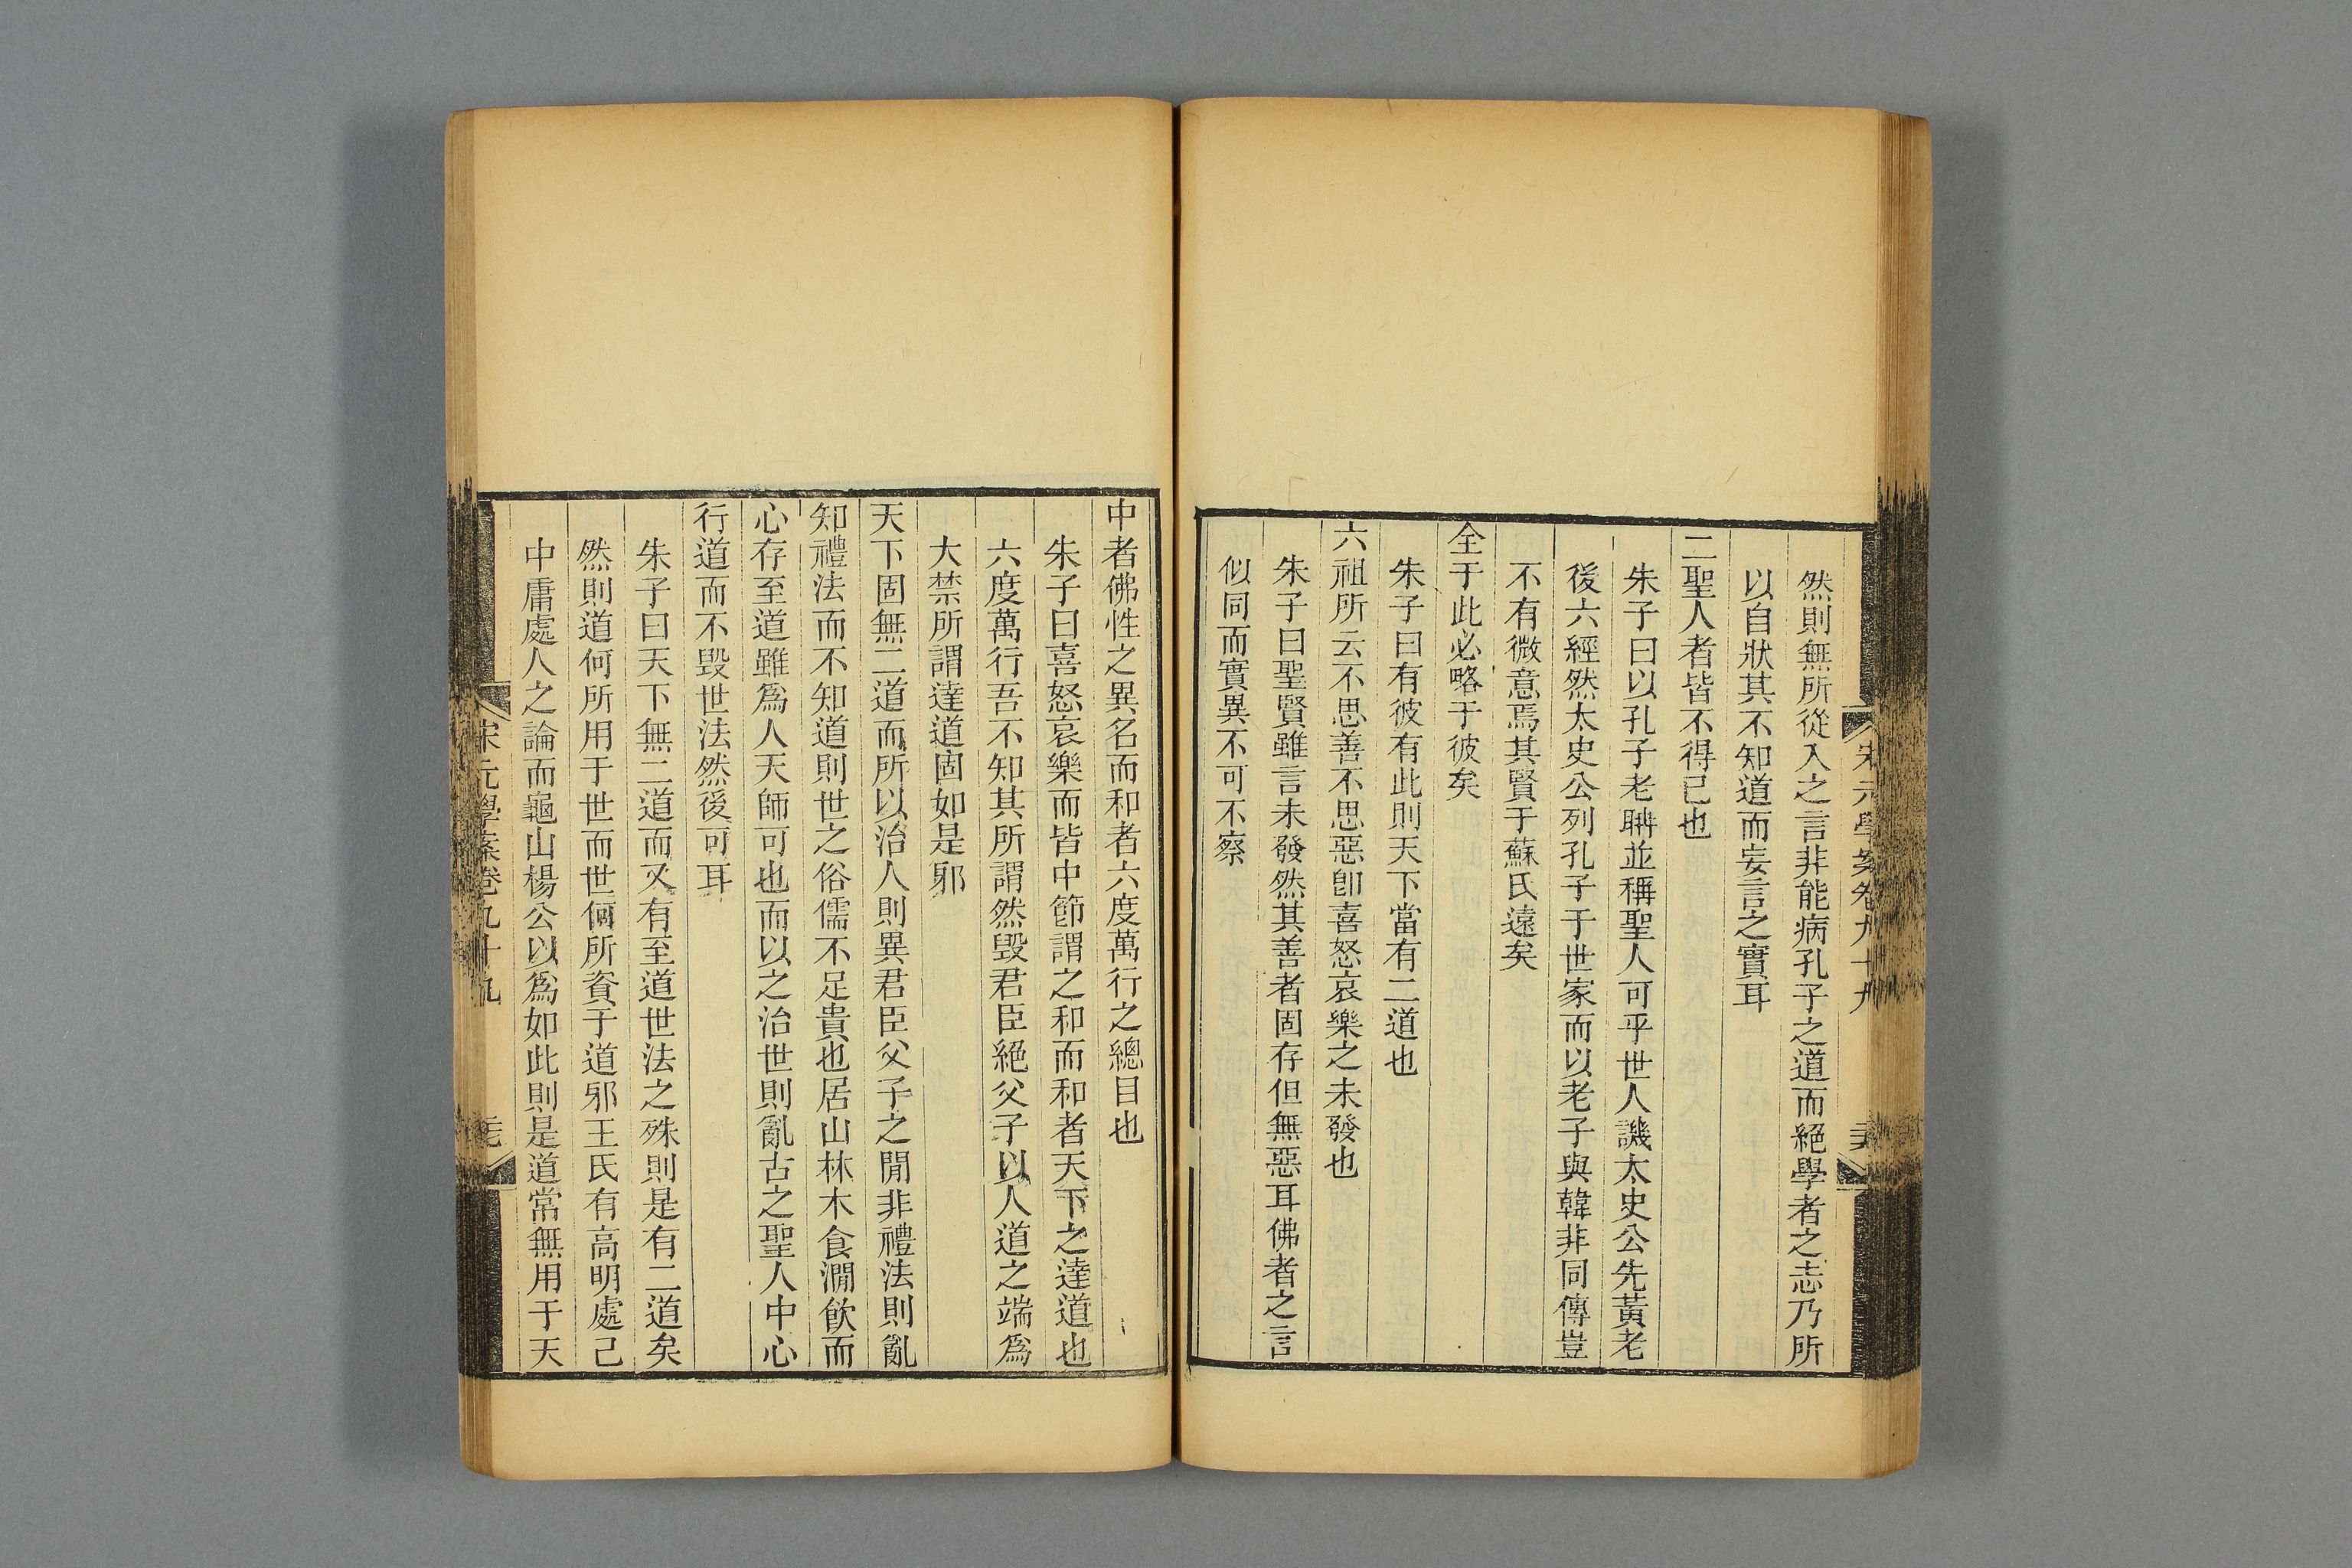 宋元學案卷九十九
然則無所從入之言非能病孔子之道而絕學者之志乃所
以自狀其不知道而妄言之實耳
二聖人者皆不得已也
朱子曰以孔子老聃並稱聖人可乎世人譏太史公先黃老
後六經然太史公列孔子于世家而以老子與韓非同傳豈
不有微意焉其賢于蘇氏遠矣
全于此必略于彼矣
朱子曰有彼有此則天下當有二道也
六祖所云不思善不思惡卽喜怒哀樂之未發也
朱子曰聖賢雖言未發然其善者固存但無惡耳佛者之言
似同而實異不可不察
中者佛性之異名而和者六度萬行之總目也
朱子曰喜怒哀樂而皆中節謂之和而和者天下之達道也
六度萬行吾不知其所謂然毀君臣絕父子以人道之端爲
大禁所謂達道固如是邪
天下固無二道而所以治人則異君臣父子之閒非禮法則亂
知禮法而不知道則世之俗儒不足貴也居山林木食澗飮而
心存至道雖爲人天師可也而以之治世則亂古之聖人中心
行道而不毀世法然後可耳
朱子曰天下無二道而又有至道世法之殊則是有二道矣
然則道何所用于世而世何所資于道邪王氏有高明處己
中庸處人之論而龜山楊公以爲如此則是道常無用于天
宋元學案卷九十九